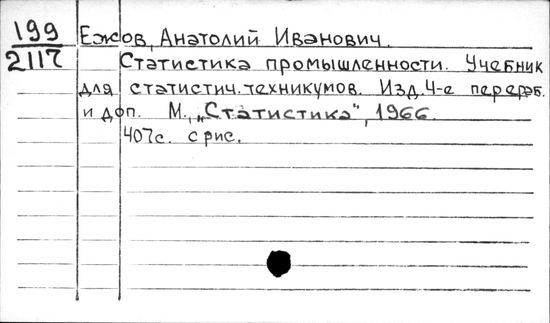 199 Ежов, Анатолий Иванович.
2117 Статистика промышленности. Учебник
для статистич. техникумов. Изд. 4-е перераб.
и доп. М., „Статистика", 1966.
407с. с рис.